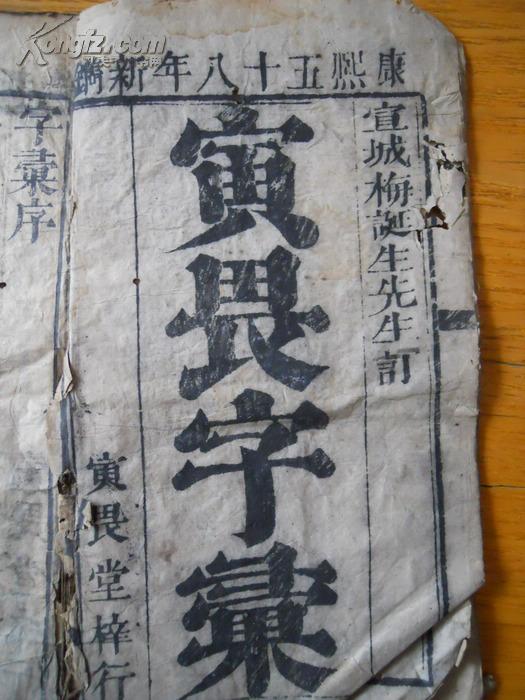 康熙五十八年新鐫
宣城梅誕生先生訂
寅畏字彙
寅畏堂梓行
字彙序
Kongfz.com